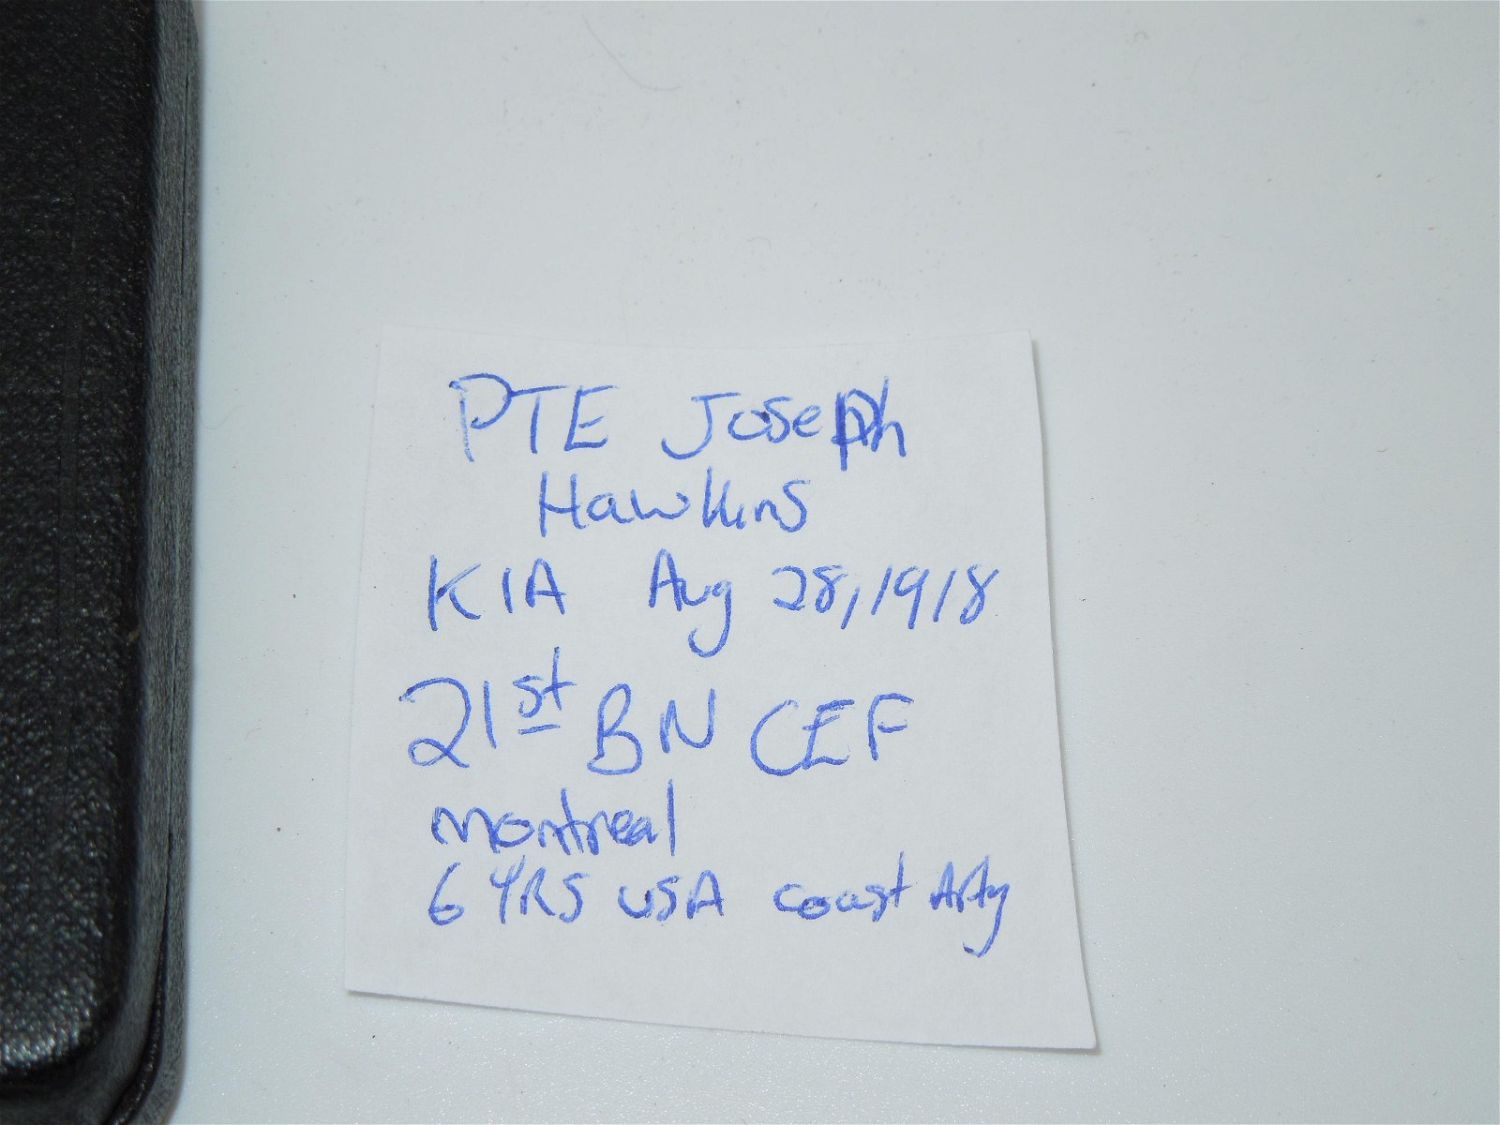 PTE Joseph
Hawkins
KIA Aug 28, 1918
21st BN CEF
montreal
6 YRS USA coast Arty